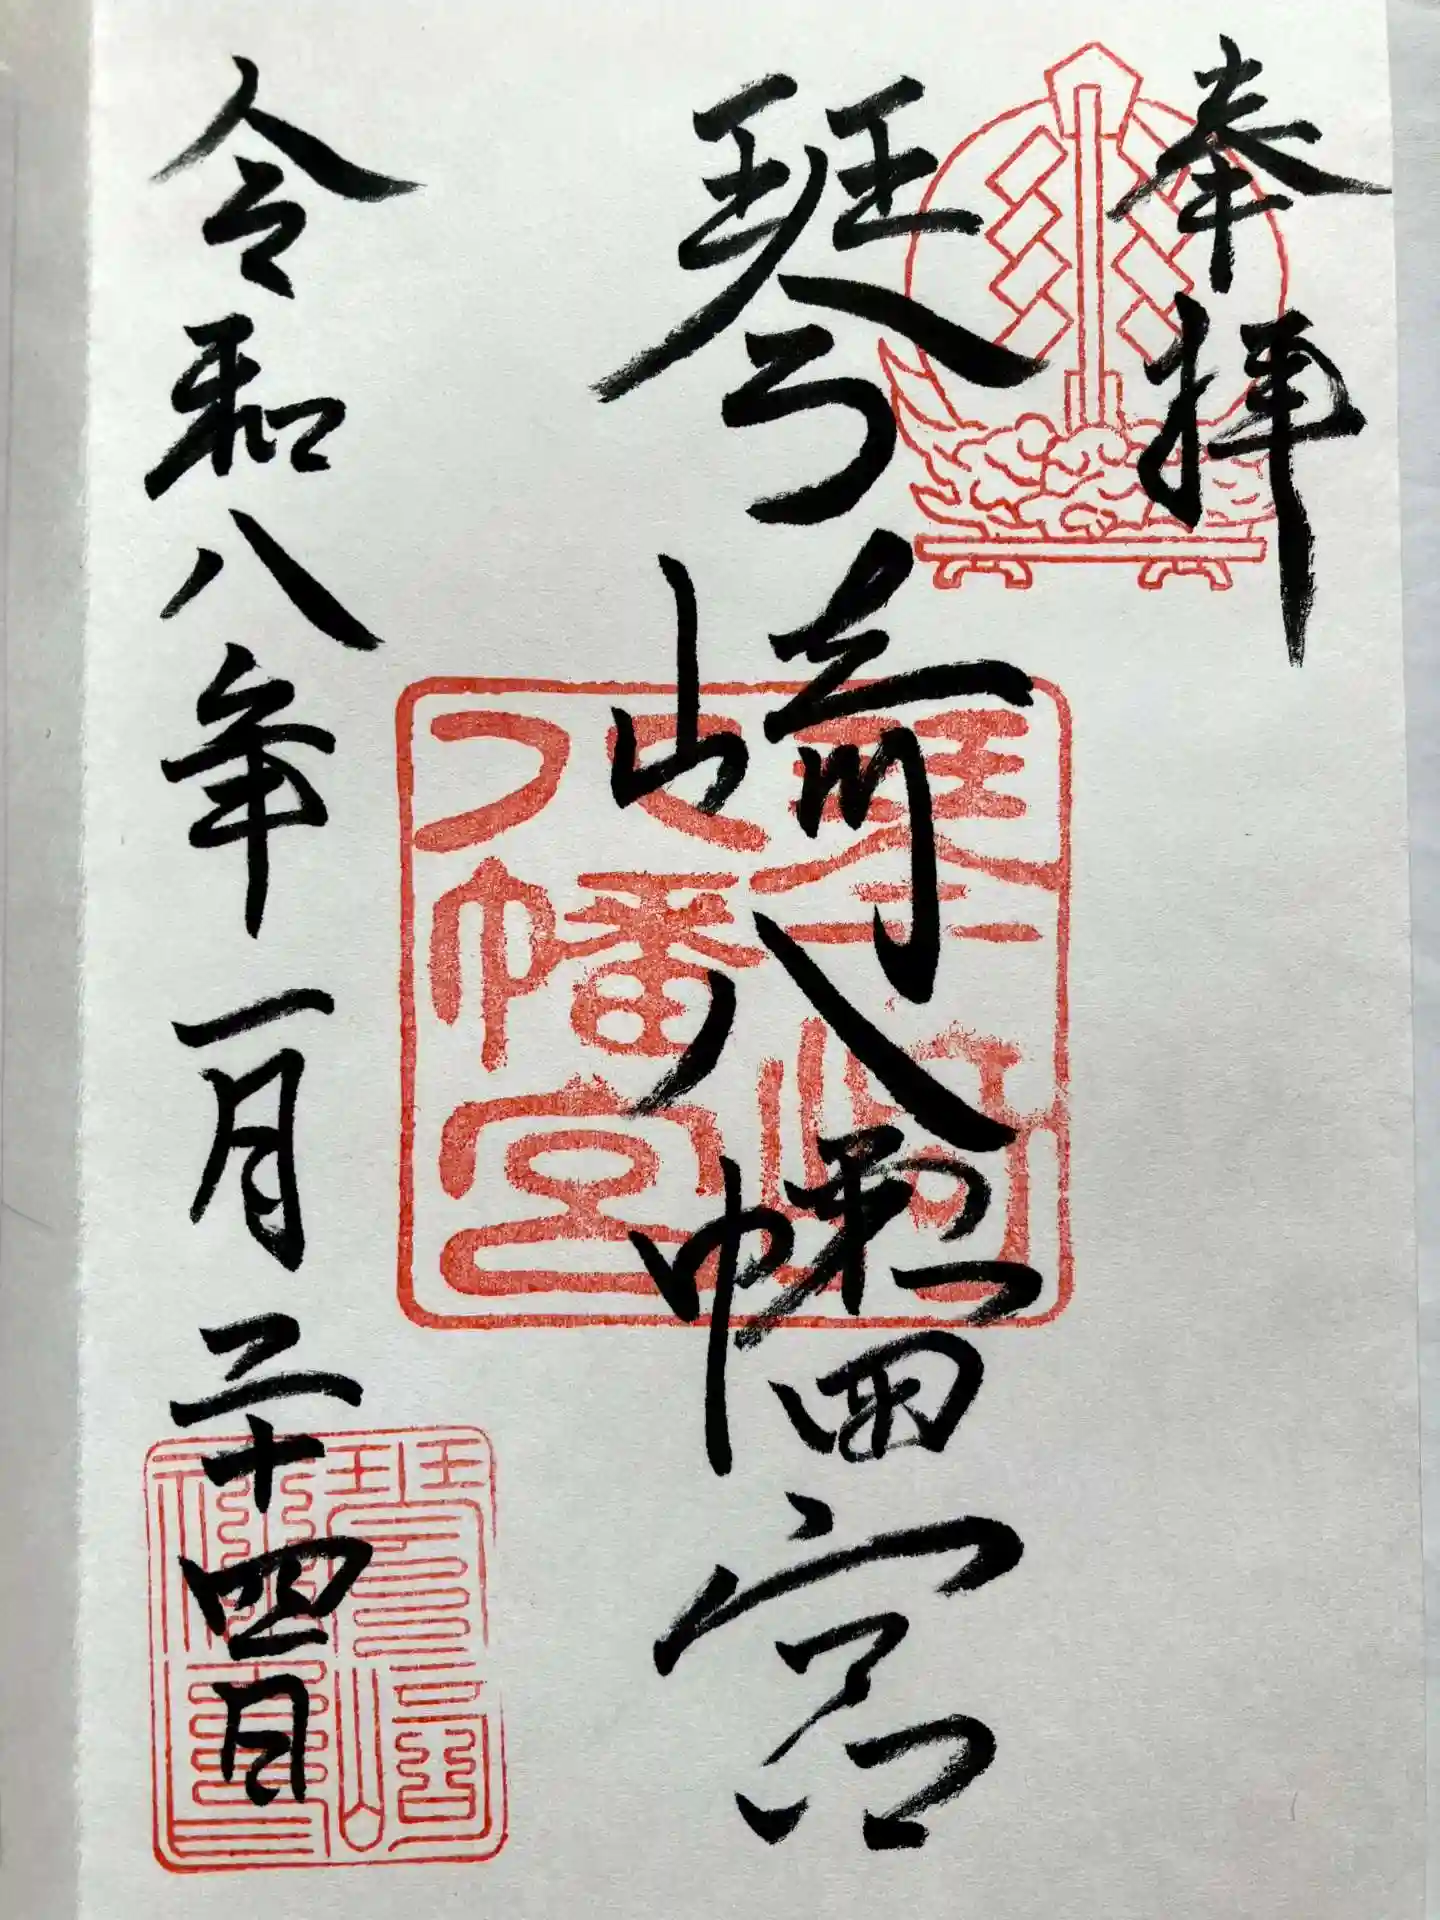 奉拝
琴崎八幡宮
令和八年一月二十四日
琴崎
八幡宮